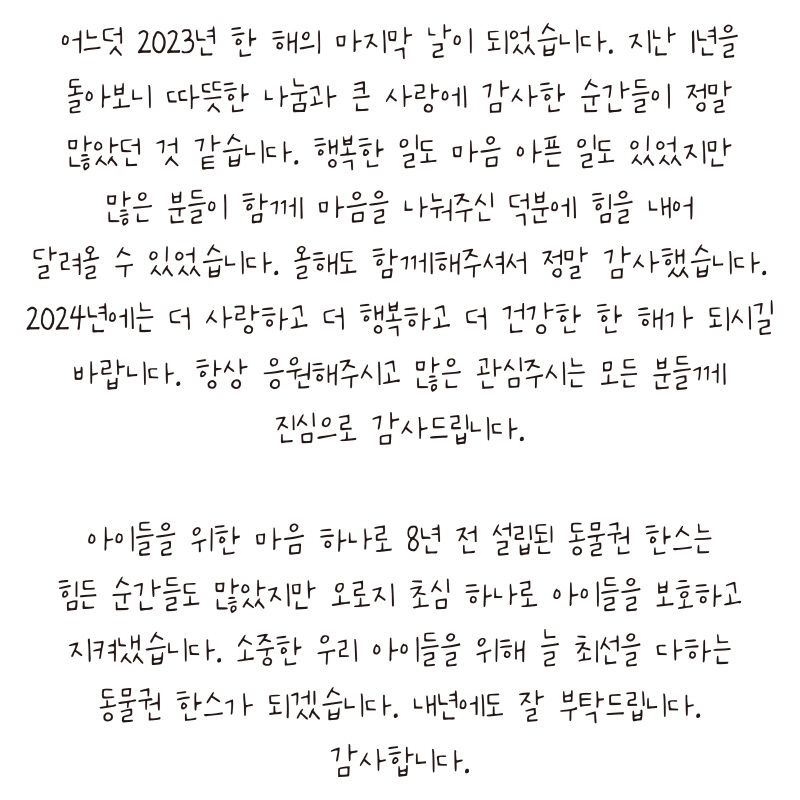 어느덧 2023년 한 해의 마지막 날이 되었습니다. 지난 1년을
돌아보니 따뜻한 나눔과 큰 사랑에 감사한 순간들이 정말
많았던 것 같습니다. 행복한 일도 마음 아픈 일도 있었지만
많은 분들이 함께 마음을 나눠주신 덕분에 힘을 내어
달려올 수 있었습니다. 올해도 함께해주셔서 정말 감사했습니다.
2024년에는 더 사랑하고 더 행복하고 더 건강한 한 해가 되시길
바랍니다. 항상 응원해주시고 많은 관심주시는 모든 분들께
진심으로 감사드립니다.
아이들을 위한 마음 하나로 8년 전 설립된 동물권 한스는
힘든 순간들도 많았지만 오로지 초심 하나로 아이들을 보호하고
지켜냈습니다. 소중한 우리 아이들을 위해 늘 최선을 다하는
동물권 한스가 되겠습니다. 내년에도 잘 부탁드립니다.
감사합니다.